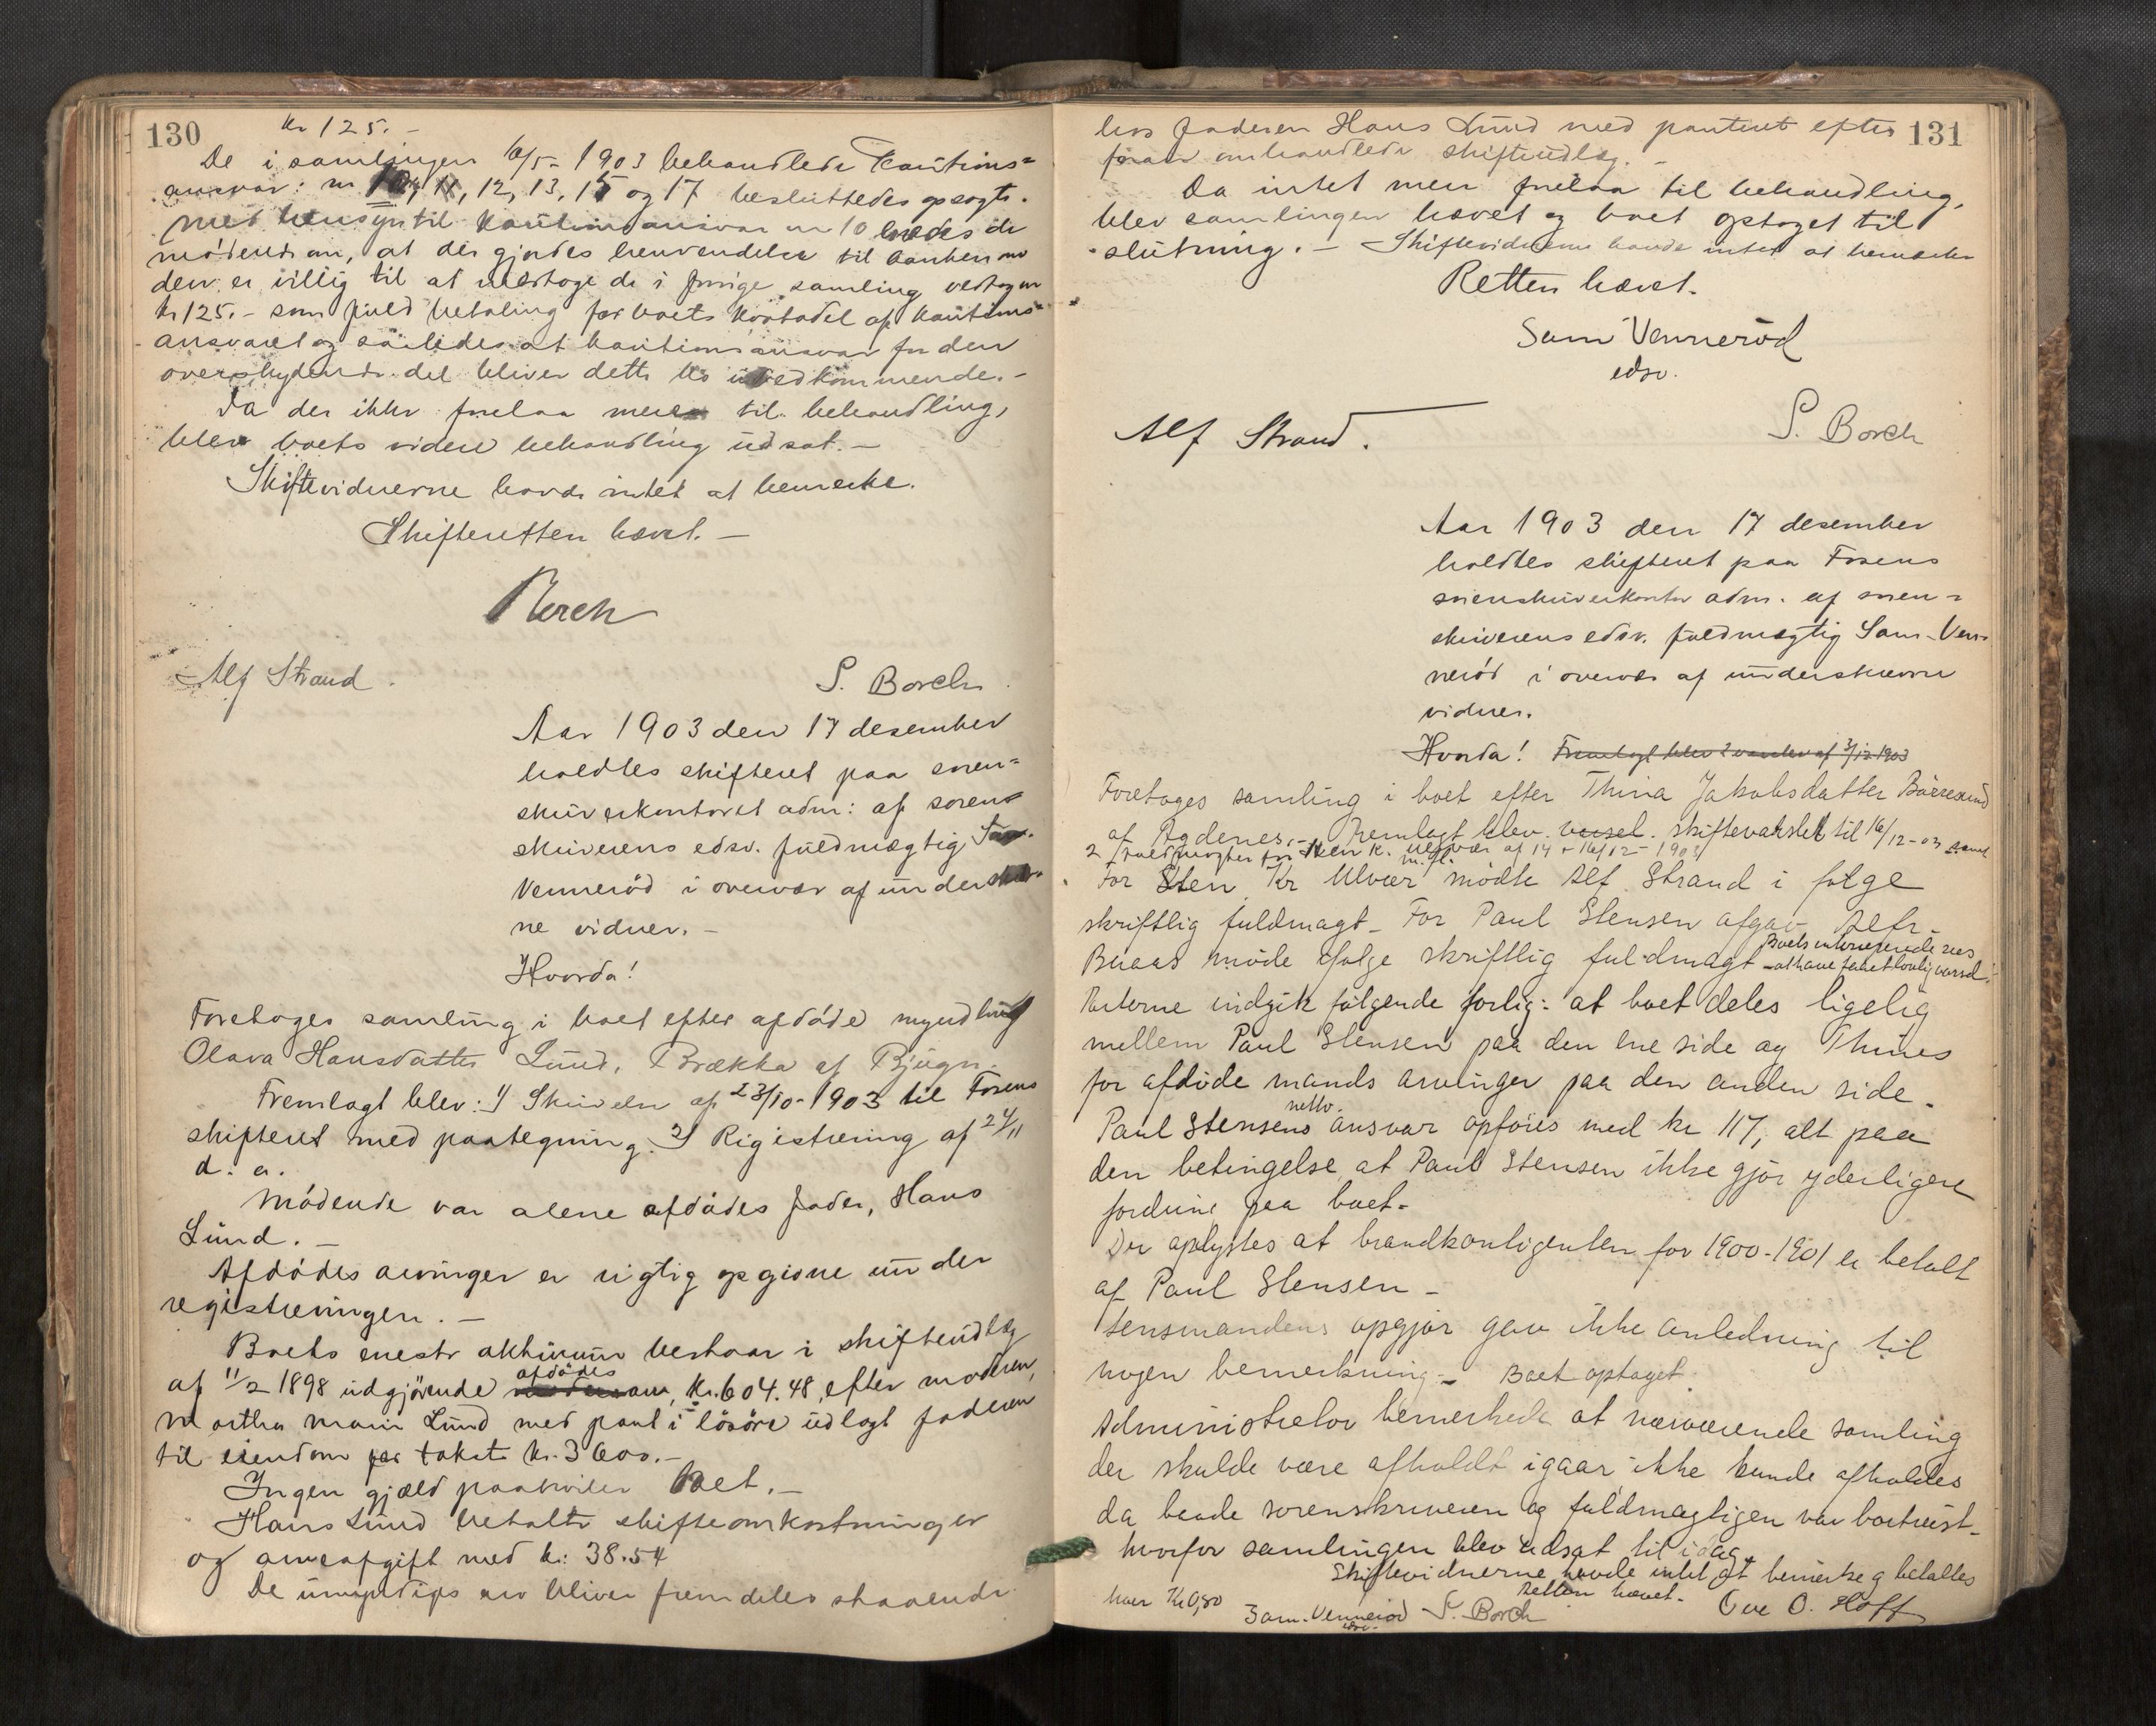 130
kr 125.-
De i samlingen 6/5- 1903 behandlede kautions=
ansvar: nr 11, 12, 13, 15 og 17 besluttedes opsagt.
Med hensyn til kautionsansvar nr 10 enedes de
mødende om, at der gjordes henvendelse til banken om
den er villig til at modtage de i forrige samling vedtagne
kr 125.- som fuld betaling for boets kvotadel af kautions=
ansvaret og saaledes at kautionsansvar for den
overskydende del bliver dette bo uvedkommende.-
Da der ikke forelaa mere til behandling,
blev boets videre behandling udsat.-
Skiftevidnerne havde intet at bemerke.
Skifteretten hævet.-
Borch
Alf Strand.
S. Borch.
Aar 1903 den 17 desember
holdtes skifteret paa soren=
skriverkontoret adm: af soren=
skriverens edsv. fuldmægtig Sam.
Vennerød i overvær af underskrev=
ne vidner.-
Hvorda!
Foretoges samling i boet efter afdøde myndling
Olava Hansdatter Lund, Brækka af Bjugn.
Fremlagt blev: 1) Skrivelse af 23/10-1903 til Fosens
skifteret med paategning. 2) Registrering af 24/11
d. a.
Mødende var alene afdødes fader, Hans
Lund.-
Afdødes arvinger er rigtig opgivne under
registreringen.-
Boets eneste aktivum bestaar i skifteudlæg
af 11/2 1898 udgjørende afdødes arv, kr. 604.48, efter moderen,
Martha Marie Lund med pant i løsøre udlagt faderen
til eiendom for takst kr. 3600.-
Ingen gjæld paahviler boet.-
Hans Lund betalte skifteomkostninger
og arveafgift med kr: 38.54
De umyndiges arv bliver fremdeles staaende
131
hos faderen Hans Lund med panteret efter
foran omhandlede skifteudlæg.-
Da intet mere forelaa til behandling,
blev samlingen hævet og boet optaget til
slutning.- Skiftevidnerne havde intet at bemerke
Retten hævet.
Sam Vennerød
edsv.
Alf Strand.
S. Borch
Aar 1903 den 17 desember
holdtes skifteret paa Fosens
sorenskriverkontor adm. af soren=
skriverens edsv. fuldmægtig Sam. Ven=
nerød i overvær af underskrevne
vidner.
Hvorda! Fremlagt blev 2 varsler af 3/12 1903
Foretoges samling i boet efter Thina Jakobsdatter Børresund
af Agdenes.- Fremlagt blev varsel. skiftevarslet til 16/12-03 samt
2 fuldmagter for Sten K. Ulvær af 14 + 16/12 - 1903
For Sten Kr Ulvær m. fl. mødte Alf Strand i følge
skriftlig fuldmagt- For Paul Stensen afgav Alfr.
Buaas møde ifølge skriftlig fuldmagt - Boets interesserede
at have faaet lovlig varsel.
Parterne indgik følgende forlig: at boet deles ligelig
mellem Paul Stensen paa den ene side og Thines
før afdøde mands arvinger paa den anden side.
Paul Stensens netto ansvar opføres med kr 117, alt paa
den betingelse at Paul Stensen ikke gjør yderligere
fordring paa boet-
Der oplystes at brandkontigenten for 1900-1901 er betalt
af Paul Stensen-
Lensmandens opgjør gav ikke anledning til
nogen bemerkning- Boet optaget.
Administrator bemerkede at nærværende samling
der skulde være afholdt igaar ikke kunde afholdes
da baade sorenskriveren og fuldmægtigen var bortreist-
hvorfor samlingen blev udsat til idag.
Skiftevidnerne havde intet at bemerke og betaltes
hver Kr 0,80
Retten hævet.
Sam. Vennerød
edsv.
S. Borch
Ove O. Hoff